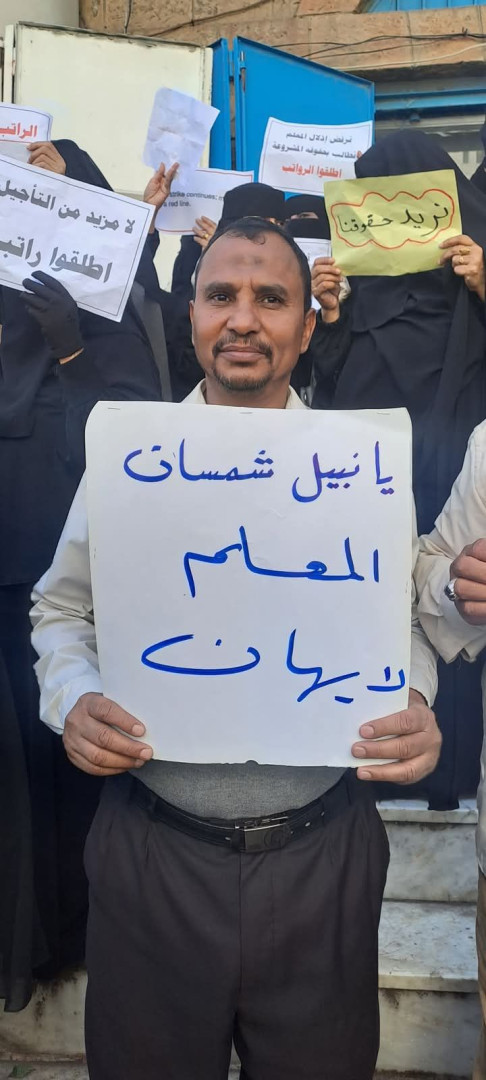 الراتب
لا مزيد من التأجيل
اطلقوا راتب
strike continues;
red line.
نرفض إذلال المعلم
نطالب بحقوقه المشروعة
اطلقوا الرواتب
نريد حقوقنا
يا نبيل شمسان
المعلم
لا يهان